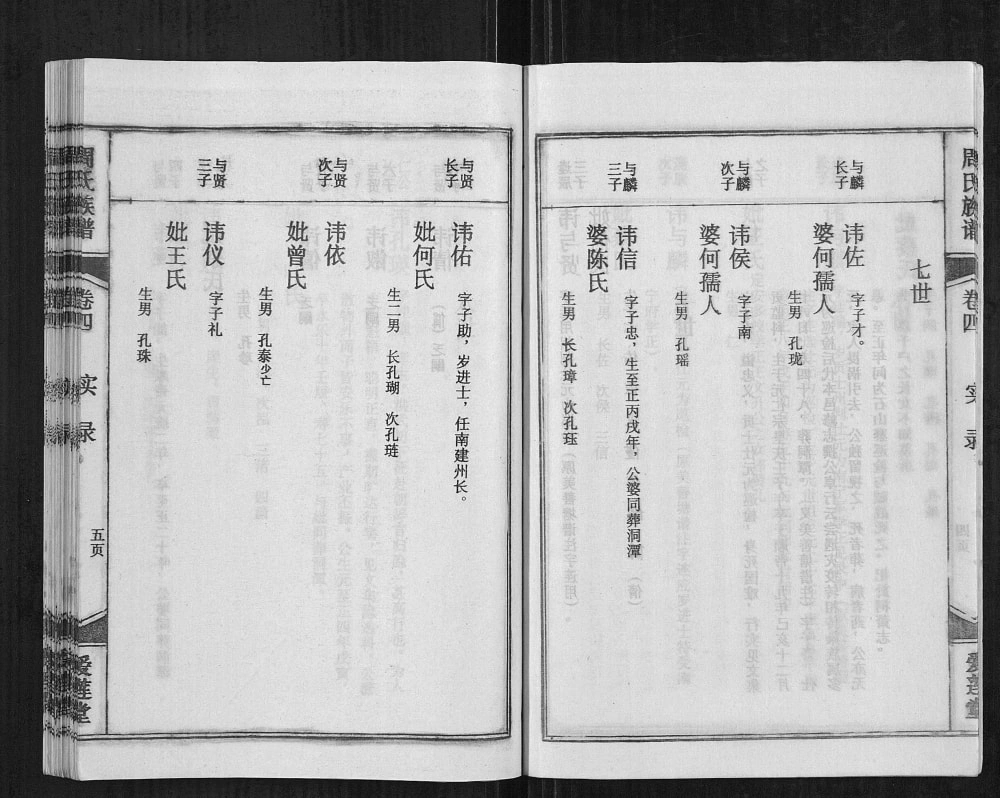 周氏族谱
卷四
实录
爱莲堂
七世
与麟
长子
讳佐
字子才。
婆何孺人
生男 孔珑
与麟
次子
讳侯
字子南
婆何孺人
生男 孔瑶
与麟
三子
讳信
字子忠，生至正丙戌年，公婆同葬洞潭
婆陈氏
生男 长孔璋 次孔珏
与贤
长子
讳佑
字子助，岁进士，任南建州长。
妣何氏
生二男 长孔瑚 次孔琏
与贤
次子
讳依
妣曾氏
生男 孔泰少亡
与贤
三子
讳仪
字子礼
妣王氏
生男 孔珠
周氏族谱
卷四
实录
五页
爱莲堂